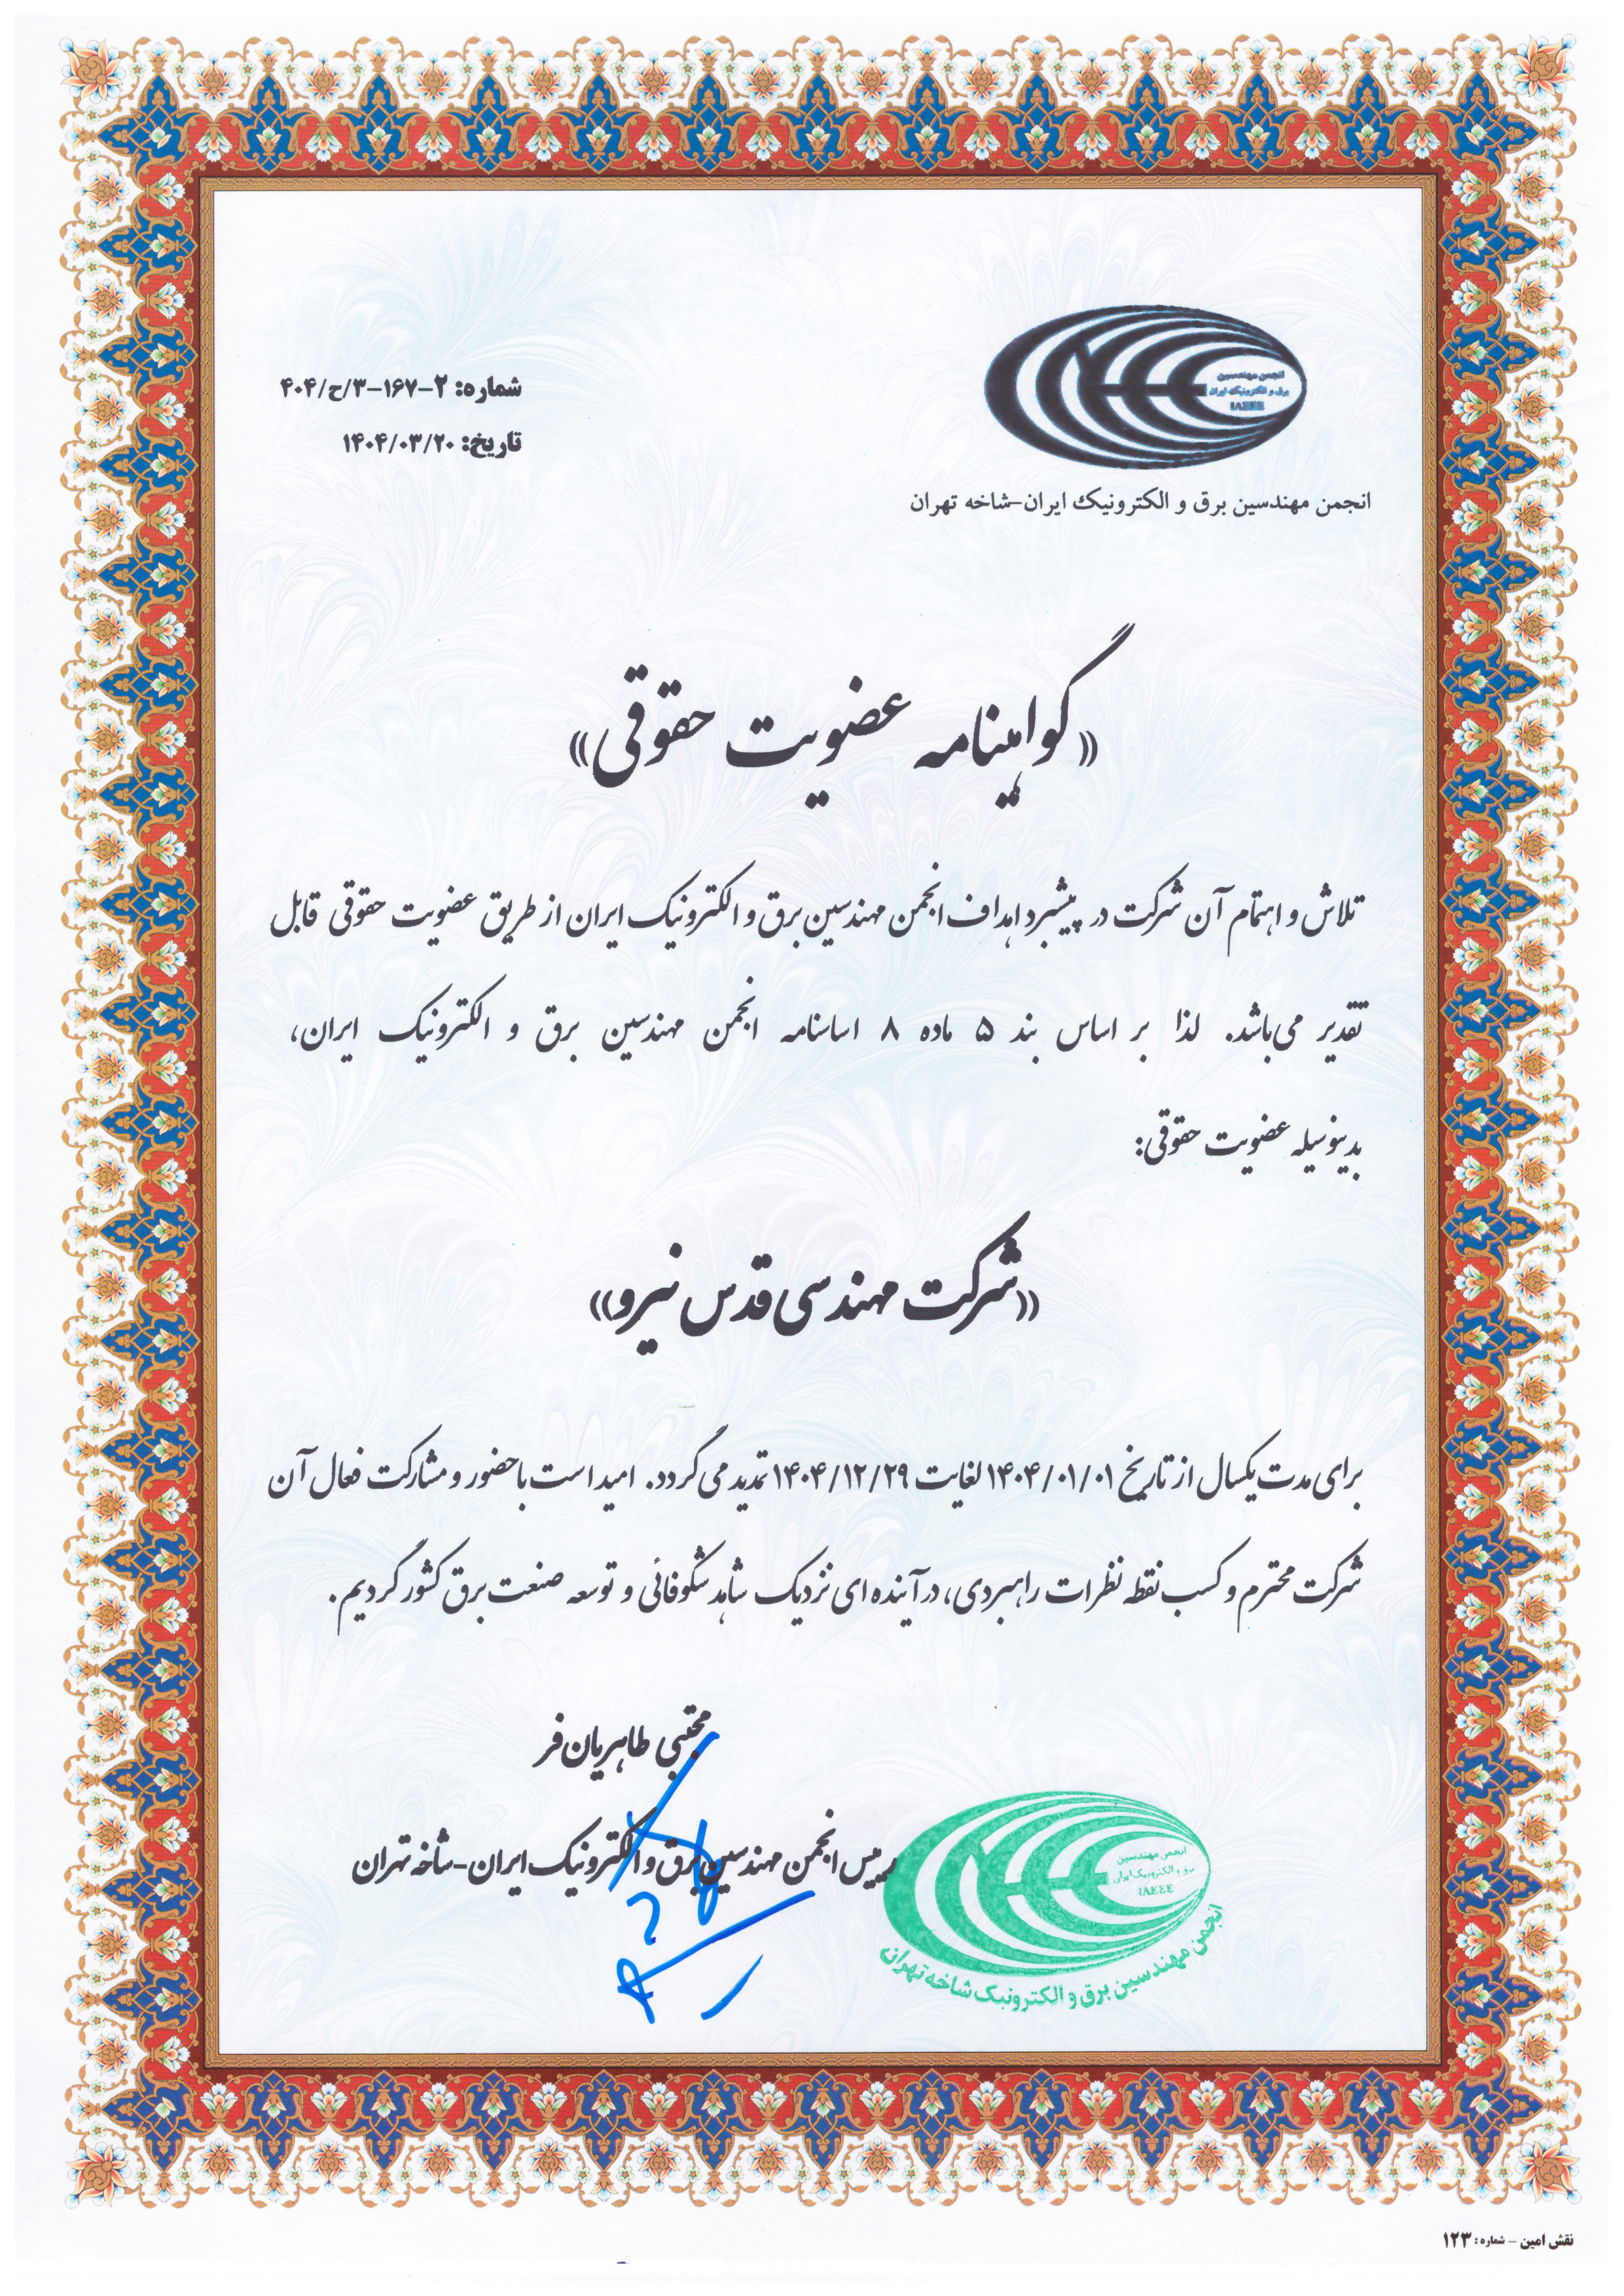 انجمن مهندسین
برق و الکترونیک ایران
IAEEE
انجمن مهندسین برق و الکترونیک ایران-شاخه تهران
شماره: ۲-۱۶۷-۳/ح/۴۰۴
تاریخ: ۱۴۰۴/۰۳/۲۰
«گواهینامه عضویت حقوقی»
تلاش و اهتمام آن شرکت در پیشبرد اهداف انجمن مهندسین برق و الکترونیک ایران از طریق عضویت حقوقی قابل
تقدیر می‌باشد. لذا بر اساس بند ۵ ماده ۸ اساسنامه انجمن مهندسین برق و الکترونیک ایران،
بدینوسیله عضویت حقوقی:
«شرکت مهندسی قدس نیرو»
برای مدت یکسال از تاریخ ۱۴۰۴/۰۱/۰۱ لغایت ۱۴۰۴/۱۲/۲۹ تمدید می گردد. امید است با حضور و مشارکت فعال آن
شرکت محترم و کسب نقطه نظرات راهبردی، در آینده ای نزدیک شاهد شکوفائی و توسعه صنعت برق کشور گردیم.
مجتبی طاهریان‌فر
رییس انجمن مهندسین برق و الکترونیک ایران-شاخه تهران
انجمن مهندسین
برق و الکترونیک ایران
IAEEE
انجمن مهندسین برق و الکترونیک شاخه تهران
نقش امین - شماره: ۱۲۳